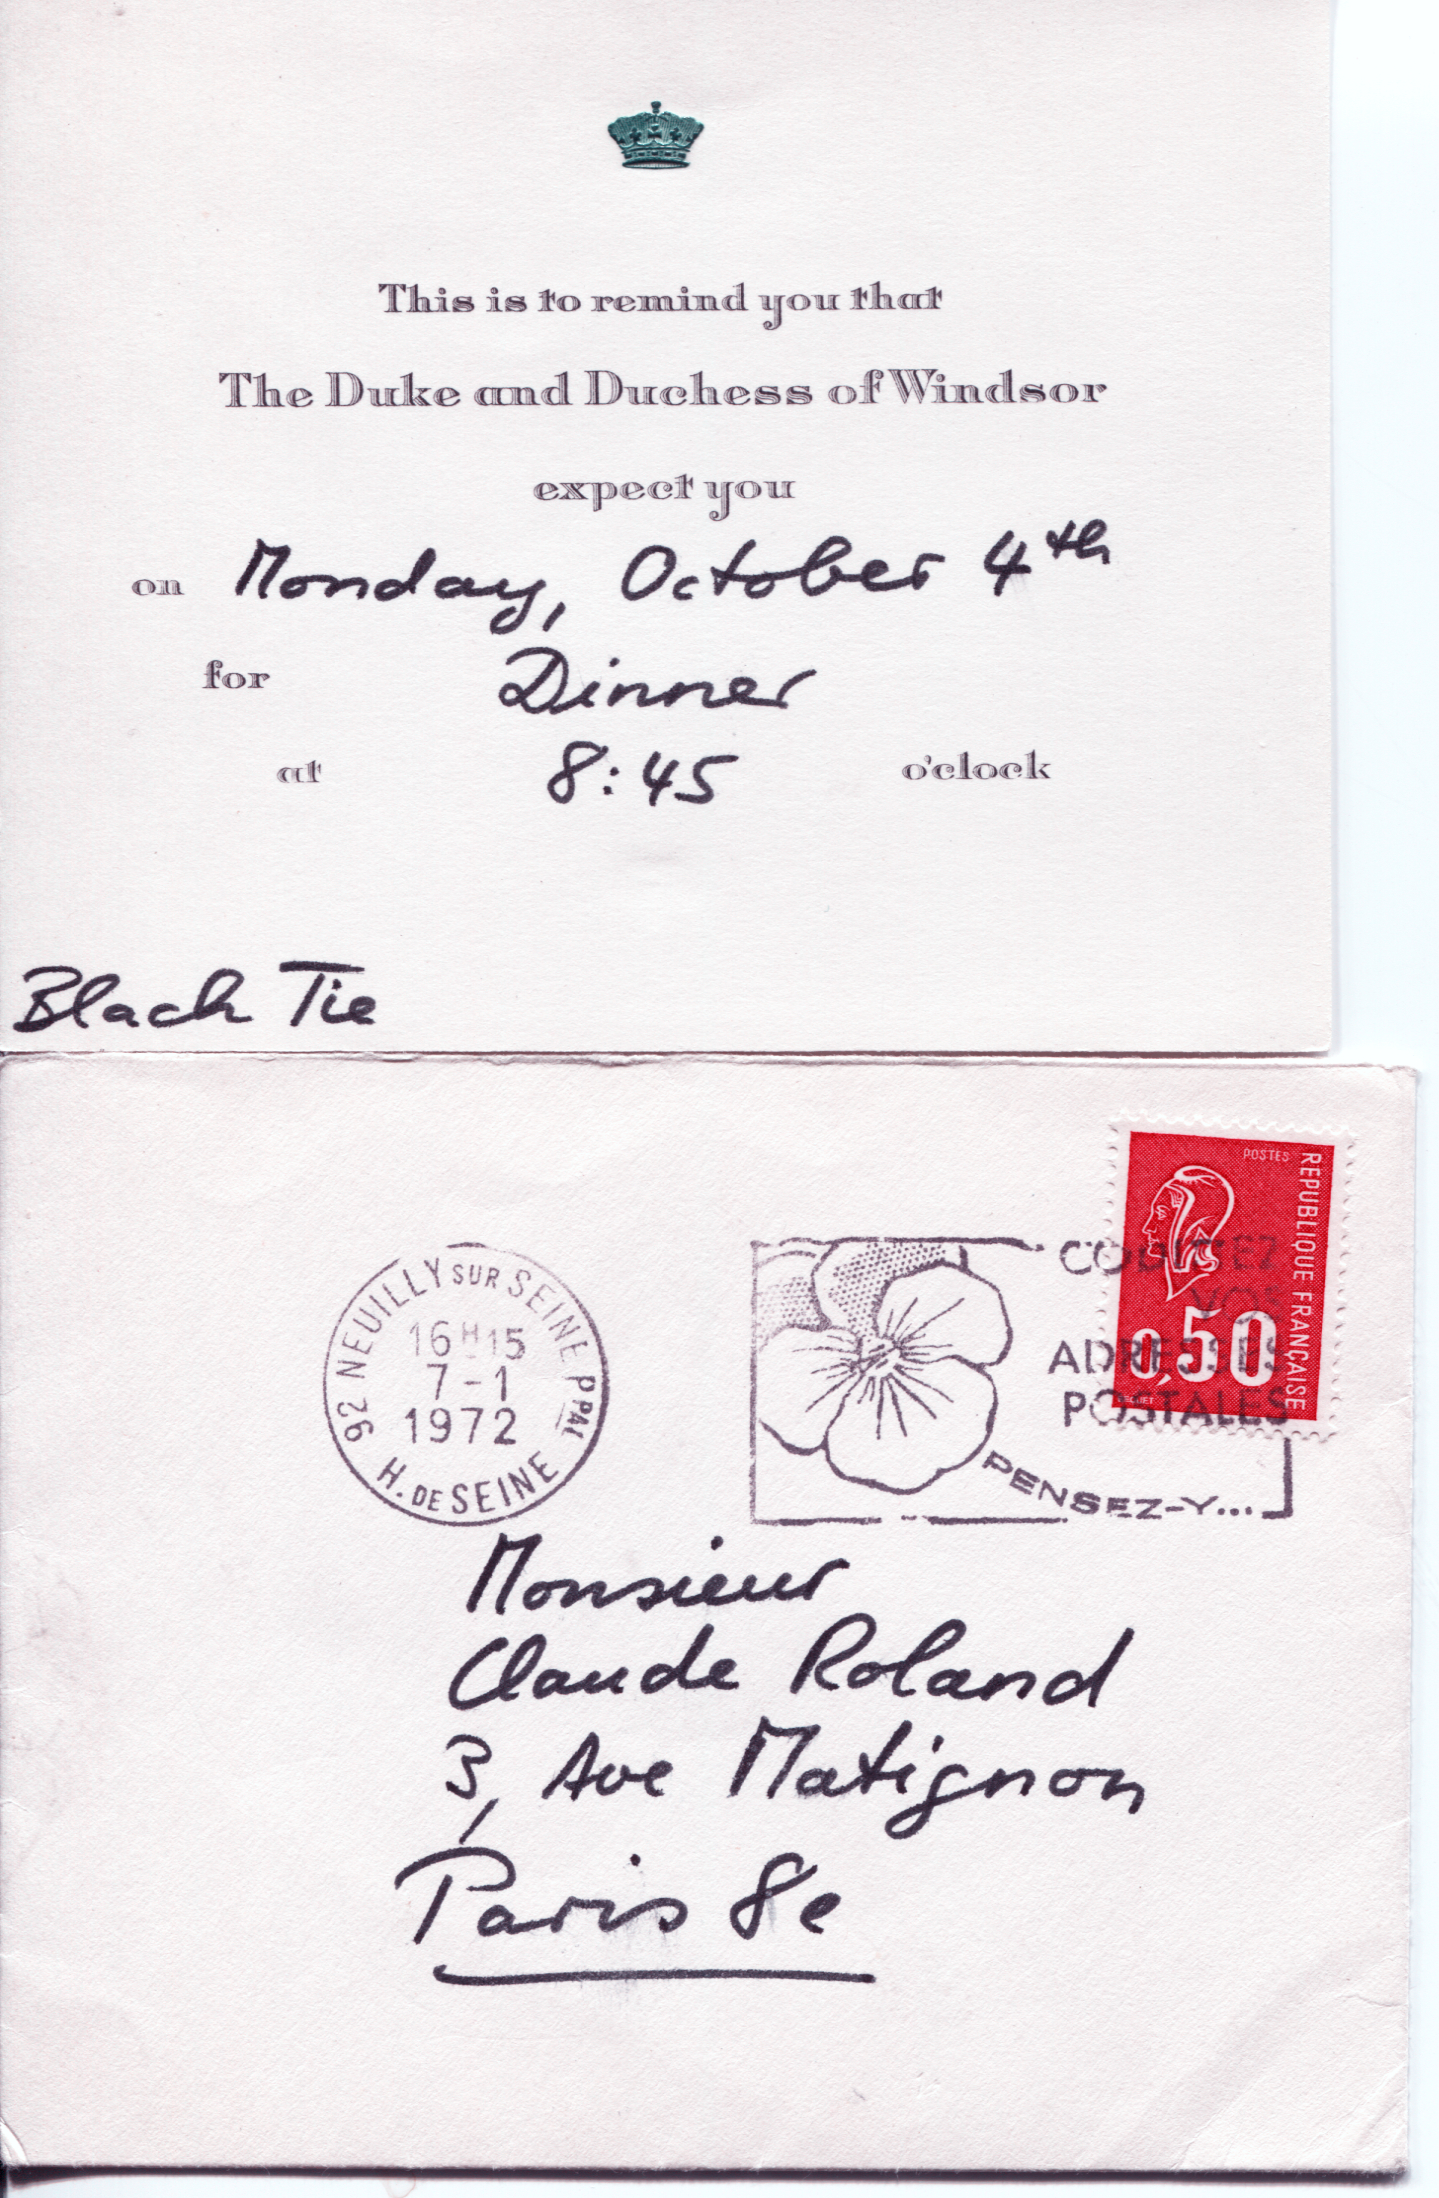 This is to remind you that
The Duke and Duchess of Windsor
expect you
on Monday, October 4th
for Dinner
at 8:45 o'clock
Black Tie
POSTES
REPUBLIQUE FRANÇAISE
0,50
92 NEUILLY SUR SEINE PPAL
16H15
7-1
1972
H. DE SEINE
CODIFIEZ
VOS
ADRESSES
POSTALES
PENSEZ-Y...
Monsieur
Claude Roland
3, Ave Matignon
Paris 8e